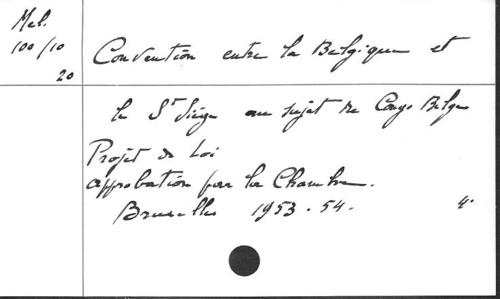 Mel.
100/10
20
Convention entre la Belgique et
le St Siège au sujet du Congo Belge
Projet de Loi
approbation par la Chambre.
Bruxelles 1953-54. 4°